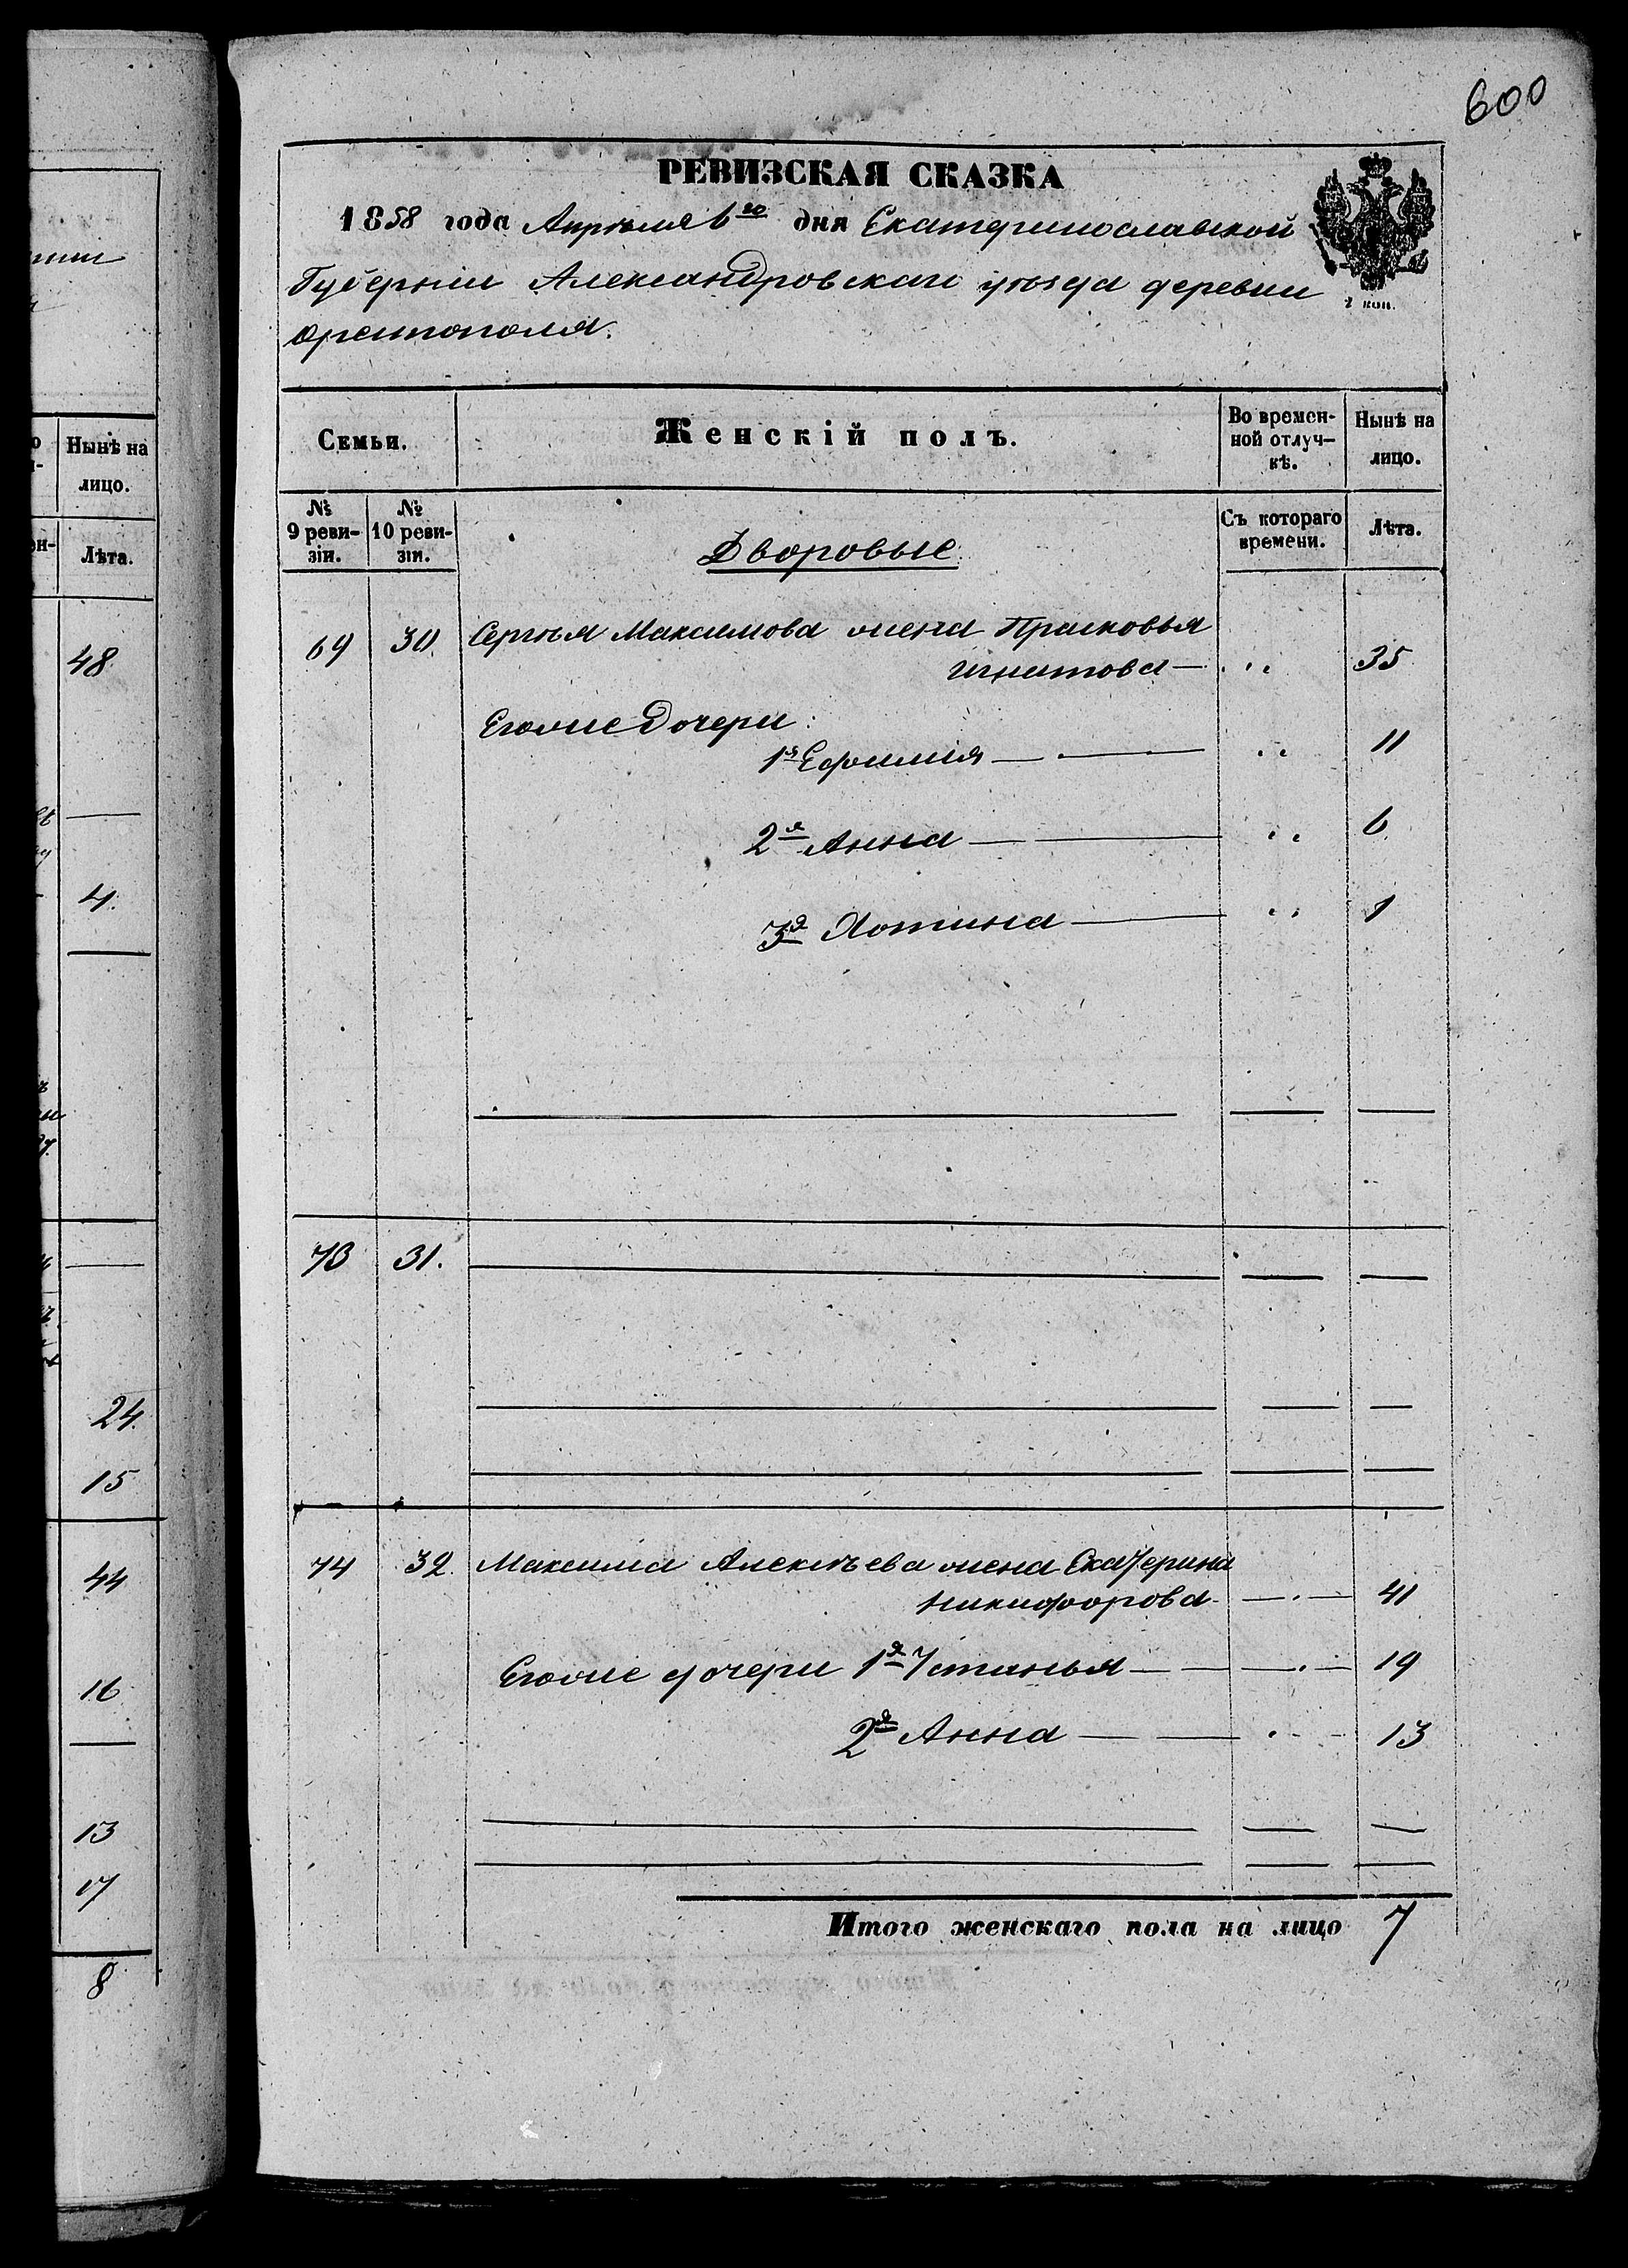 600
РЕВИЗСКАЯ СКАЗКА
1858 года Апрѣля 6го дня Екатеринославской
Губерніи Александровскаго уѣзда деревни
Орестополя.
2 коп.
Семьи. Женскій полъ. Во времен- Нынѣ на
ной отлуч- лицо.
кѣ.
№ № Съ котораго Лѣта.
9 реви- 10 реви- времени.
зіи. зіи.
Дворовые
69 30 Сергѣя Максимова жена Прасковья
Игнатова 35
Егоже Дочери:
1я Ефимія 11
2я Анна 6
3я Хотина 1
73 31.
74 32. Максима Алексѣева жена Екатерина
Никифорова 41
Егоже дочери 1я Устинья 19
2я Анна 13
Итого женскаго пола на лицо 7
Нынѣ на
лицо.
Лѣта.
48
4.
24
15
44
16
13
17
8